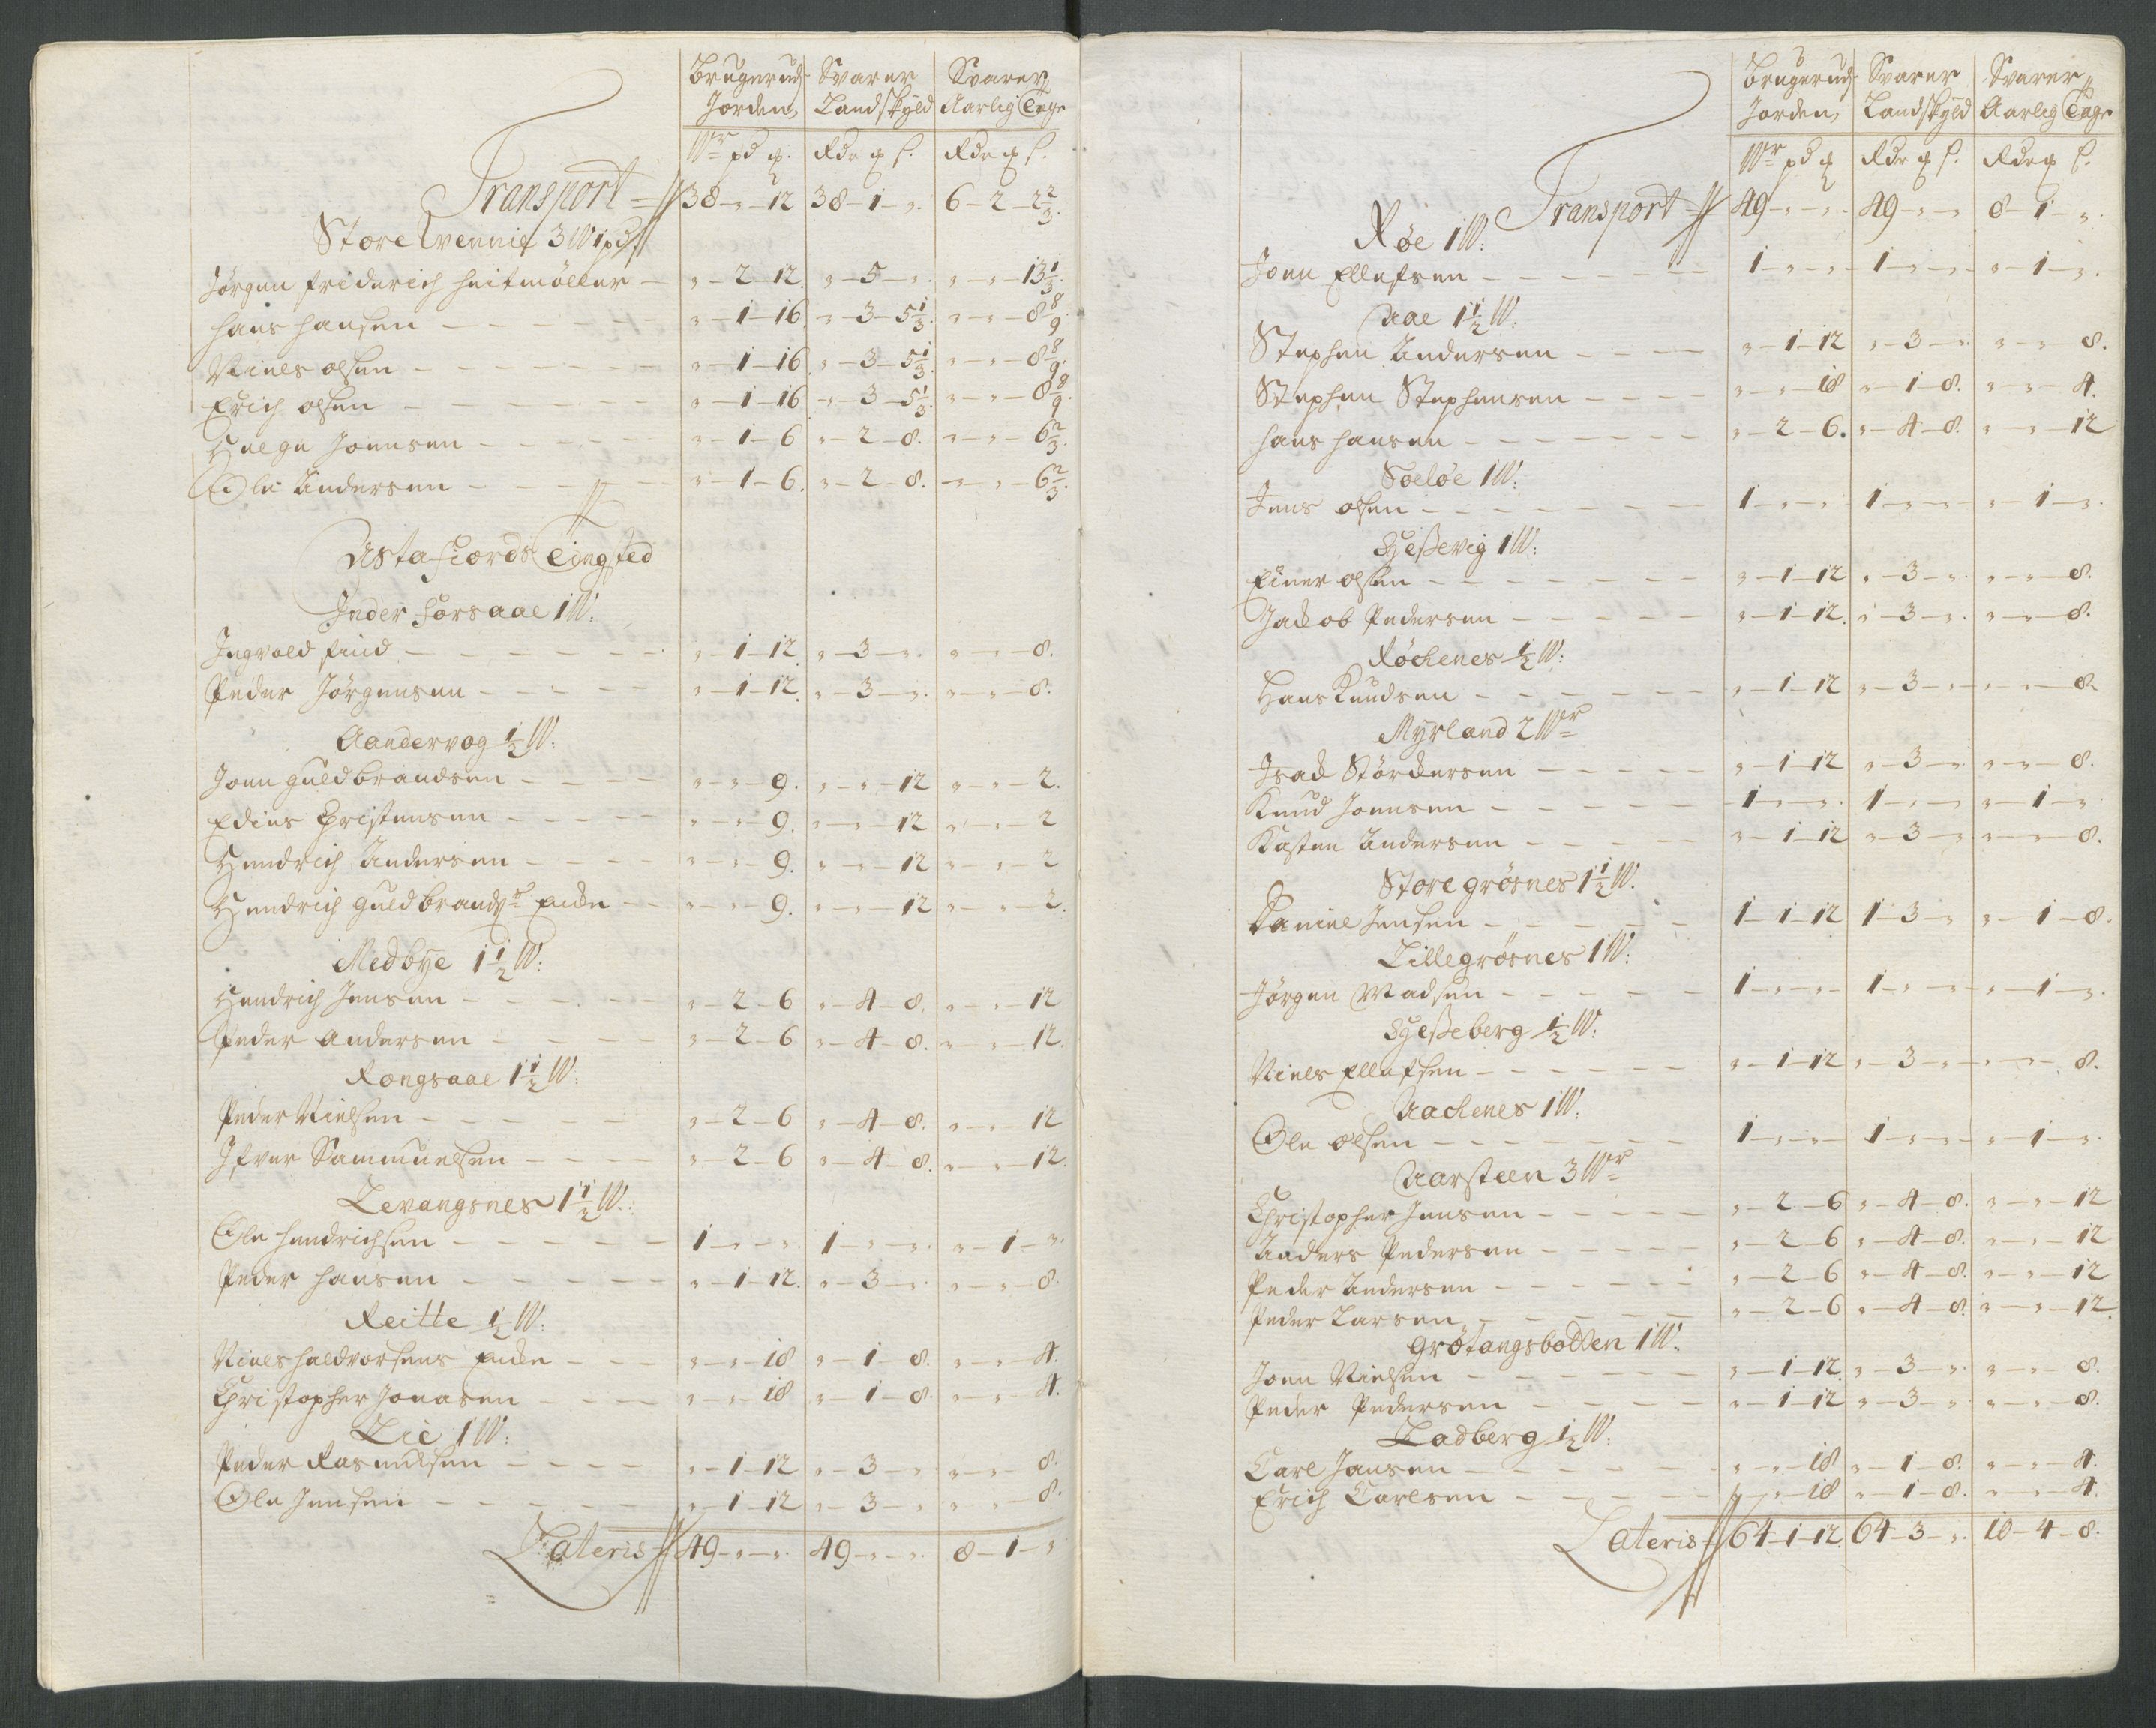 Brugerud Jorden Svarer Landskyld Svarer Aarlig Tage
Wr pd q. Rdr q s. Rdr q s.
Transport 38 - „ - 12 38 - 1 - „ 6 - 2 - 2 2/3.
Store Qvennie 3 W 1 pd:
Jørgen friderich heitmöller - „ - 2 - 12. „ - 5 - „. „ - „ - 13 1/3.
hans hansen „ - 1 - 16. „ - 3 - 5 1/3. „ - „ - 8 8/9.
Niels olsen „ - 1 - 16. „ - 3 - 5 1/3. „ - „ - 8 8/9.
Erich olsen „ - 1 - 16. „ - 3 - 5 1/3. „ - „ - 8 8/9.
Helge Joensen „ - 1 - 6 „ - 2 - 8. „ - „ - 6 2/3.
Ole Andersen „ - 1 - 6. „ - 2 - 8. „ - „ - 6 2/3.
Astafiords Tingsted
Inder forsaae 1 W:
Ingvold find „ - 1 - 12. „ - 3 - „. „ - „ - 8.
Peder Jörgensen „ - 1 - 12. „ - 3 - „. „ - „ - 8.
Aandervog 1/2 W:
Joen guldbrandsen „ - „ - 9. „ - „ - 12 „ - „ - 2.
Edies Christensen „ - „ - 9. „ - „ - 12 „ - „ - 2
Hendrich Andersen „ - „ - 9. „ - „ - 12 „ - „ - 2
Hendrich guldbrands: Encke „ - „ - 9. „ - „ - 12 „ - „ - 2.
Medbye 1 1/2 W:
Hendrich Jensen „ - 2 - 6 „ - 4 - 8. „ - „ - 12
Peder andersen „ - 2 - 6 „ - 4 - 8. „ - „ - 12.
Rongsaae 1 1/2 W:
Peder Nielsen „ - 2 - 6 „ - 4 - 8. „ - „ - 12
Ifver Sammuelsen „ - 2 - 6 „ - 4 - 8. „ - „ - 12.
Levangsnes 1 1/2 W:
Ole hendrichsen 1 - „ - „. 1 - „ - „. „ - 1 - „.
Peder hansen „ - 1 - 12. „ - 3 - „. „ - „ - 8.
Reitte 1/2 W:
Niels haldvorsens Encke „ - „ - 18 „ - 1 - 8. „ - „ - 4.
Christopher Jonasen „ - „ - 18 „ - 1 - 8. „ - „ - 4.
Lie 1 W:
Peder Rasmusen „ - 1 - 12 „ - 3 - „ „ - „ - 8.
Ole Jensen „ - 1 - 12 „ - 3 - „ „ - „ - 8.
Lateris 49 - „ - „. 49 - „ - „. 8 - 1 - „
Brugerud Jorden Svarer Landskyld Svarer Aarlig Tage
Wr pd q Rdr q s. Rdr q s.
Transport 49 - „ - „. 49 - „ - „ 8 - 1 - „.
Røe 1 W:
Joen Ellefsen 1 - „ - „ 1 - „ - „ „ - 1 - „.
Aae 1 1/2 W:
Stephen Andersen „ - 1 - 12 „ - 3 - „. „ - „ - 8.
Stephen Stephensen „ - „ - 18 „ - 1 - 8. „ - „ - 4.
hans hansen „ - 2 - 6. „ - 4 - 8. „ - „ - 12
Soeløe 1 W:
Jens olsen 1 - „ - „. 1 - „ - „. „ - 1 - „.
Hesßevig 1 W:
Einer olsen „ - 1 - 12 „ - 3 - „. „ - „ - 8.
Jackob Pedersen „ - 1 - 12. „ - 3 - „. „ - „ - 8.
Røchenes 1/2 W:
Hans Knudsen „ - 1 - 12 „ - 3 - „ „ - „ - 8.
Myrland 2 Wr
Isack Störckersen „ - 1 - 12 „ - 3 - „. „ - „ - 8.
Knud Joensen 1 - „ - „. 1 - „ - „ „ - 1 - „.
Kasten Andersen „ - 1 - 12 „ - 3 - „ „ - „ - 8.
Store grösnes 1 1/2 W.
Daniel Jensen 1 - 1 - 12 1 - 3 - „ „ - 1 - 8.
Lille grösnes 1 W:
Jörgen Madsen 1 - „ - „ 1 - „ - „ „ - 1 - „.
Hesßeberg 1/2 W:
Niels Ellefsen „ - 1 - 12 „ - 3 - „ „ - „ - 8.
Aachenes 1 W:
Ole olsen 1 - „ - „ 1 - „ - „ „ - 1 - „.
Aarsteen 3 Wr
Christopher Jensen „ - 2 - 6 „ - 4 - 8. „ - „ - 12
Anders Pedersen „ - 2 - 6 „ - 4 - 8. „ - „ - 12
Peder Andersen „ - 2 - 6 „ - 4 - 8. „ - „ - 12
Peder Larsen „ - 2 - 6 „ - 4 - 8. „ - „ - 12.
Grötangsbotten 1 W.
Joen Nielsen „ - 1 - 12. „ - 3 - „. „ - „ - 8.
Peder Pedersen „ - 1 - 12 „ - 3 - „ „ - „ - 8.
Ladberg 1/2 W:
Carl Jansen „ - „ - 18 „ - 1 - 8. „ - „ - 4.
Erich Carlsen „ - „ - 18 „ - 1 - 8. „ - „ - 4.
Lateris 64 - 1 - 12. 64 - 3 - „. 10 - 4 - 8.